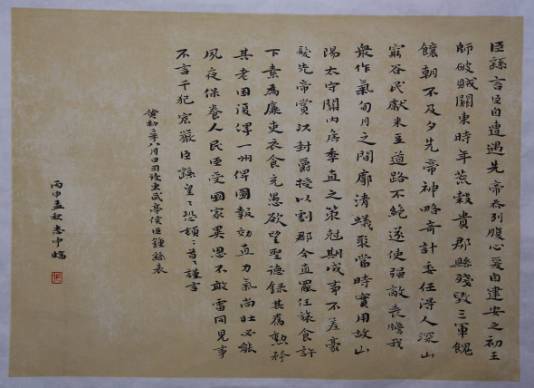 臣繇言臣自遭遇先帝忝列腹心爰自建安之初王
師破賊關東時年荒穀貴郡縣殘毀三軍餽
饟朝不及夕先帝神略奇計委任得人深山
窮谷民獻米豆道路不絕遂使強敵喪膽我
衆作氣旬月之間廓清蟻聚當時實用故山
陽太守關內侯季直之策剋期成事不差豪
髮先帝賞以封爵授以劇郡今直罷任旅食許
下素為廉吏衣食充愚欲望聖德錄其舊勳矜
其老困復俾一州俾圖報効直力氣尚壯必能
夙夜保養人民臣受國家異恩不敢雷同見事
不言干犯宸嚴臣繇皇々恐頓々首々謹言
黃初二年八月日司徒東武亭侯臣鍾繇表
丙申孟秋志中臨